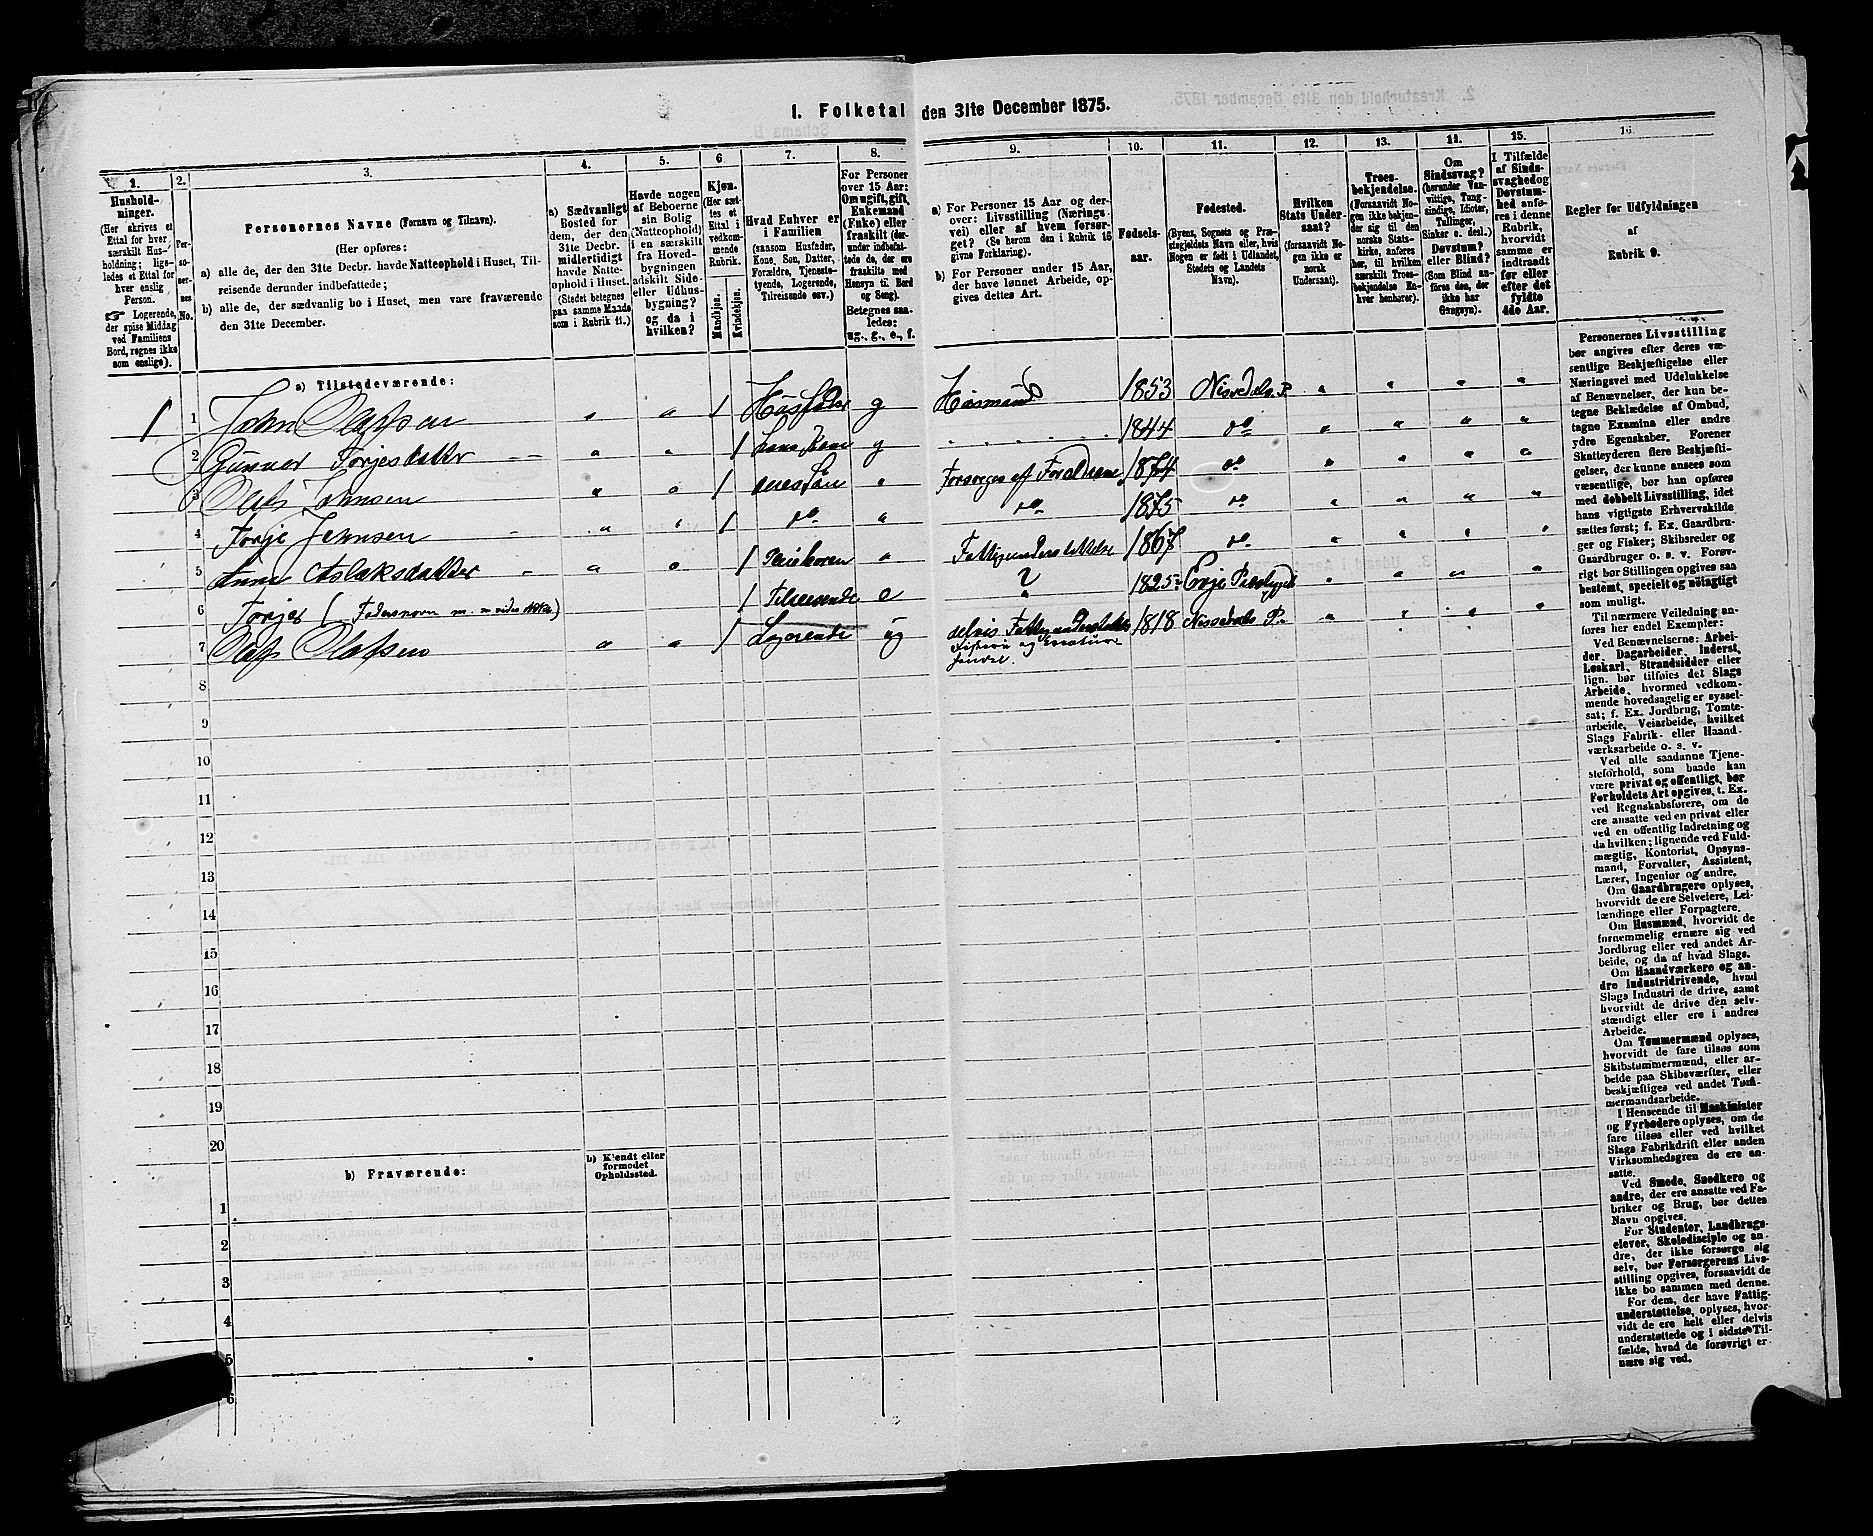 I. Folketal den 31te December 1875.
1.
Husholdninger.
(Her skrives et
Ettal for hver
særskilt Husholdning; ligeledes
et Ettal for
hver enslig
Person.
Logerende,
der spise Middag
ved Familiens
Bord, regnes ikke
som enslige).
2.
Personernes
No.
3.
Personernes Navne (Fornavn og Tilnavn).
(Her opføres:
a) alle de, der den 31te Decbr. havde Natteophold i Huset, Tilreisende derunder indbefattede;
b) alle de, der sædvanlig bo i Huset, men vare fraværende
den 31te December.
4.
a) Sædvanligt
Bosted for
dem, der den
31te Decbr.
midlertidigt
havde Natteophold
i Huset.
(Stedet betegnes
paa samme Maade
som i Rubrik 11.)
5.
Havde nogen
af Beboerne
sin Bolig
(Natteophold)
i en særskilt
fra Hovedbygningen
adskilt Side-
eller Udhusbygning?
og da i
hvilken?
6
Kjøn.
(Her sættes
et
Ettal i
vedkommende
Rubrik.
Mandkjøn.
Kvindekjøn.
7.
Hvad Enhver er
i Familien
(saasom Husfader,
Kone, Søn, Datter,
Forældre, Tjenestetyende,
Logerende,
Tilreisende osv.)
8.
For Personer
over 15 Aar:
Om ugift, gift,
Enkemand
(Enke) eller
fraskilt (derunder
indbefattede
de, der ere
fraskilte med
Hensyn til Bord
og Seng).
Betegnes saaledes:
ug., g., e., f.
9.
a) For Personer 15 Aar og derover:
Livsstilling (Næringsvei)
eller af hvem forsørget?
(Se herom den i Rubrik 16
givne Forklaring).
b) For Personer under 15 Aar,
der have lønnet Arbeide, opgives
dettes Art.
10.
Fødselsaar.
11.
Fødested.
(Byens, Sognets og Præstegjeldets
Navn, eller, hvis
Nogen er født i Udlandet,
Stedets og Landets
Navn).
12.
Hvilken
Stats Undersaat?
(forsaavidt Nogen
ikke er
norsk
Undersaat).
13.
Troesbekjendelse.
(Forsaavidt Nogen
ikke bekjender
sig til den
norske Statskirke,
anføres
her, til hvilken
særskilt Troesbekjendelse
Enhver
henhører).
14.
Om
Sindssvag?
(herunder Vanvittige,
Tungsindige,
Idioter,
Tullinger,
Sinker o. desl.)
Døvstum?
eller Blind?
(Som Blind anføres
den, der
ikke har
Gangsyn).
15.
I Tilfælde
af Sindssvaghed
og
Døvstumhed
anføres
i denne
Rubrik,
hvorvidt
samme er
indtraadt
før eller
efter det
fyldte
4de Aar.
16.
Regler for Udfyldningen
af
Rubrik 9.
a) Tilstedeværende:
1 1 John Olafsen 1 Husfader g Huusmand 1853 Nisedals P.
2 Gunner Torjesdatter 1 hans Kone g 1844 do
3 Olaf Johnsen 1 deres Søn Forsørges af Forældrene 1874 do
4 Torje Johnsen 1 do do 1875 do
5 Anne Aslaksdatter 1 Fattigunderstøttelse 1867 do
6 Torjer ( Fadersnavn m. m vides ikke) 1 Tilreisende e ? 1825 Evje Præstegjed
7 Olaf Olafsen 1 Logerende ug delvis Fattigunderstøttet 1818 Nissedals P.
Fiskeri og Kreaturhandel.
8
9
10
11
12
13
14
15
16
17
18
19
20
b) Fraværende:
b) Kjendt eller
formodet
Opholdssted.
1
2
3
4
5
6
Personernes Livsstilling
bør angives efter deres væsentlige
Beskjæftigelse eller
Næringsvei med Udelukkelse
af Benævnelser, der kun betegne
Beklædelse af Ombud,
tagne Examina eller andre
ydre Egenskaber. Forener
Skatteyderen flere Beskjæftigelser,
der kunne ansees som
væsentlige, bør han opføres
med dobbelt Livsstilling, idet
hans vigtigste Erhvervskilde
sættes først; f. Ex. Gaardbruger
og Fisker; Skibsreder og
Gaardbruger o. s. v. Forøvrigt
bør Stillingen opgives saa
bestemt, specielt og nøiagtigt
som muligt.
Til nærmere Veiledning anføres
her endel Exempler:
Ved Benævnelserne: Arbeider,
Dagarbeider, Inderst,
Løskarl, Strandsidder eller
lign. bør tilføies det Slags
Arbeide, hvormed vedkommende
hovedsagelig er sysselsat;
f. Ex. Jordbrug, Tomtearbeide,
Veiarbeide, hvilket
Slags Fabrik- eller Haandværksarbeide
o. s. v.
Ved alle saadanne Tjenesteforhold,
som baade kan
være privat og offentligt, bør
Forholdets Art opgives, t. Ex.
ved Regnskabsførere, om de
ere ansatte ved en privat eller
ved en offentlig Indretning og
da hvilken; lignende ved Fuldmægtig,
Kontorist, Opsynsmand,
Forvalter, Assistent,
Lærer, Ingeniør og andre.
Om Gaardbrugere oplyses,
hvorvidt de ere Selveiere, Leilændinge
eller Forpagtere.
Om Husmænd, hvorvidt de
fornemmelig ernære sig ved
Jordbrug eller ved andet Arbeide,
og da af hvad Slags.
Om Haandværkere og andre
Industridrivende, hvad
Slags Industri de drive, samt
hvorvidt de drive den selvstændigt
eller ere i andres
Arbeide.
Om Tømmermænd oplyses,
hvorvidt de fare tilsøs som
Skibstømmermænd, eller arbeide
paa Skibsværfter, eller
beskjæftiges ved andet Tømmermandsarbeide.
I Henseende til Maskinister
og Fyrbødere oplyses, om de
fare tilsøs eller ved hvilket
Slags Fabrikdrift eller anden
Virksomhedsgren de ere ansatte.
Ved Smede, Snedkere og
andre, der ere ansatte ved Fabriker
og Brug, bør dettes
Navn opgives.
For Studenter, Landbrugselever,
Skoledisciple og andre,
der ikke forsørge sig
selv, bør Forsørgerens Livsstilling
opgives, forsaavidt de
ikke bo sammen med denne.
For dem, der have Fattigunderstøttelse,
oplyses, hvorvidt
de ere helt eller delvis
understøttede og i sidste Tilfælde,
hvad de forøvrigt ernære
sig ved.